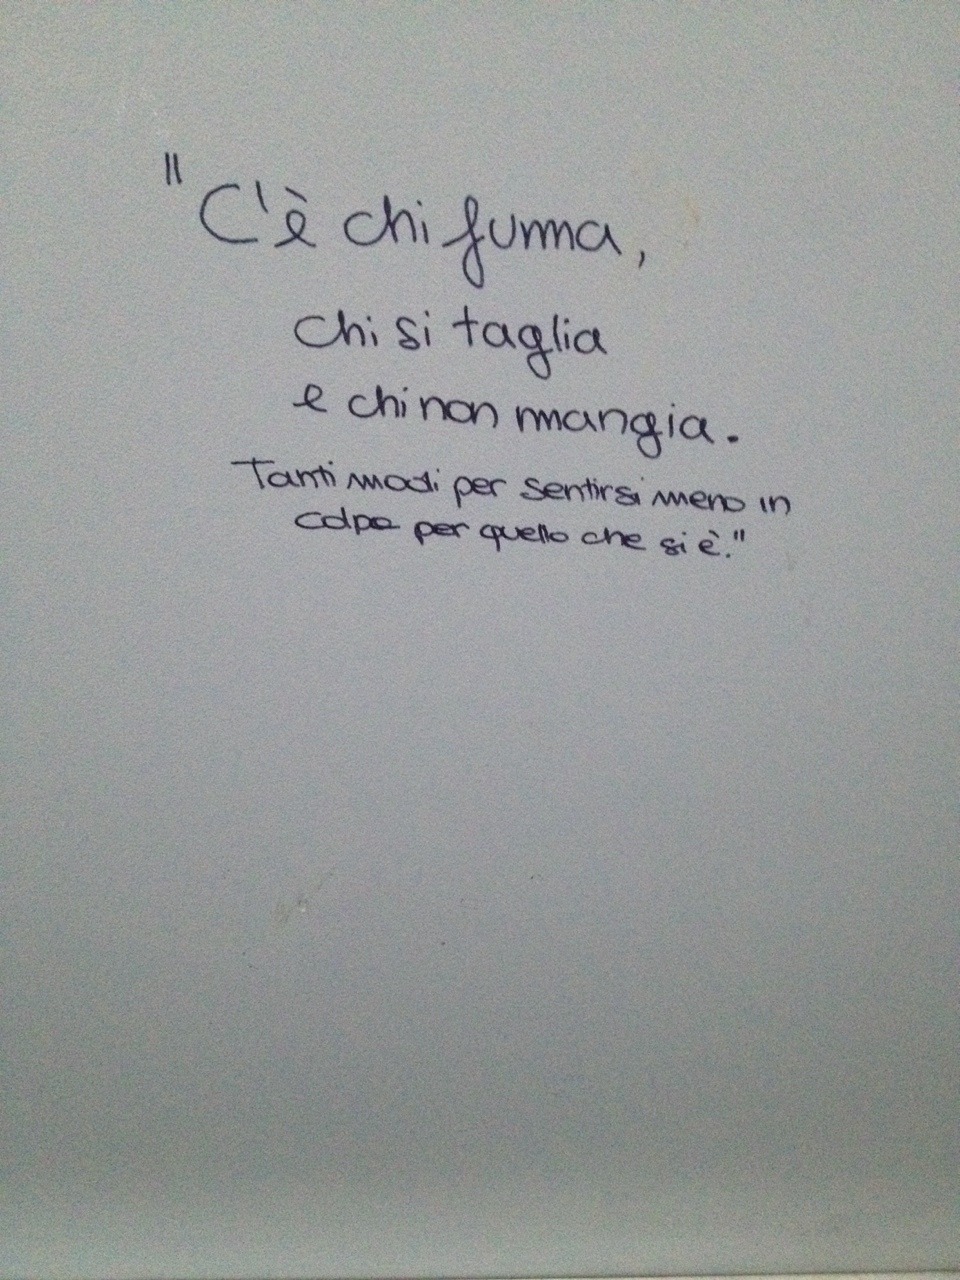 "C'è chi fuma,
chi si taglia
e chi non mangia.
Tanti modi per sentirsi meno in
colpa per quello che si è."